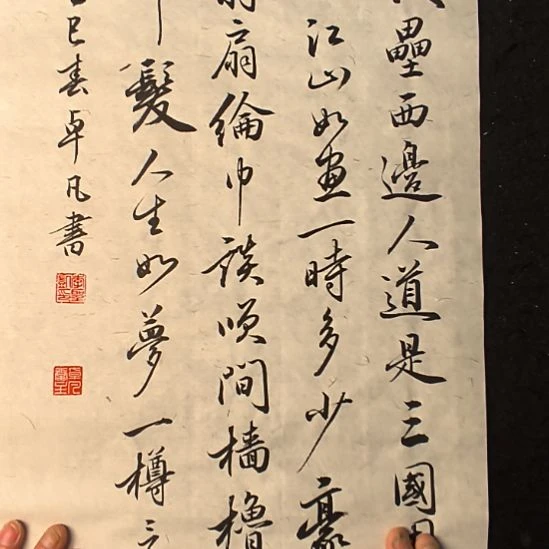 壘西邊人道是三國
江山如畫一時多少豪
扇綸巾談笑間檣櫓
髮人生如夢一樽
巳春卓凡書